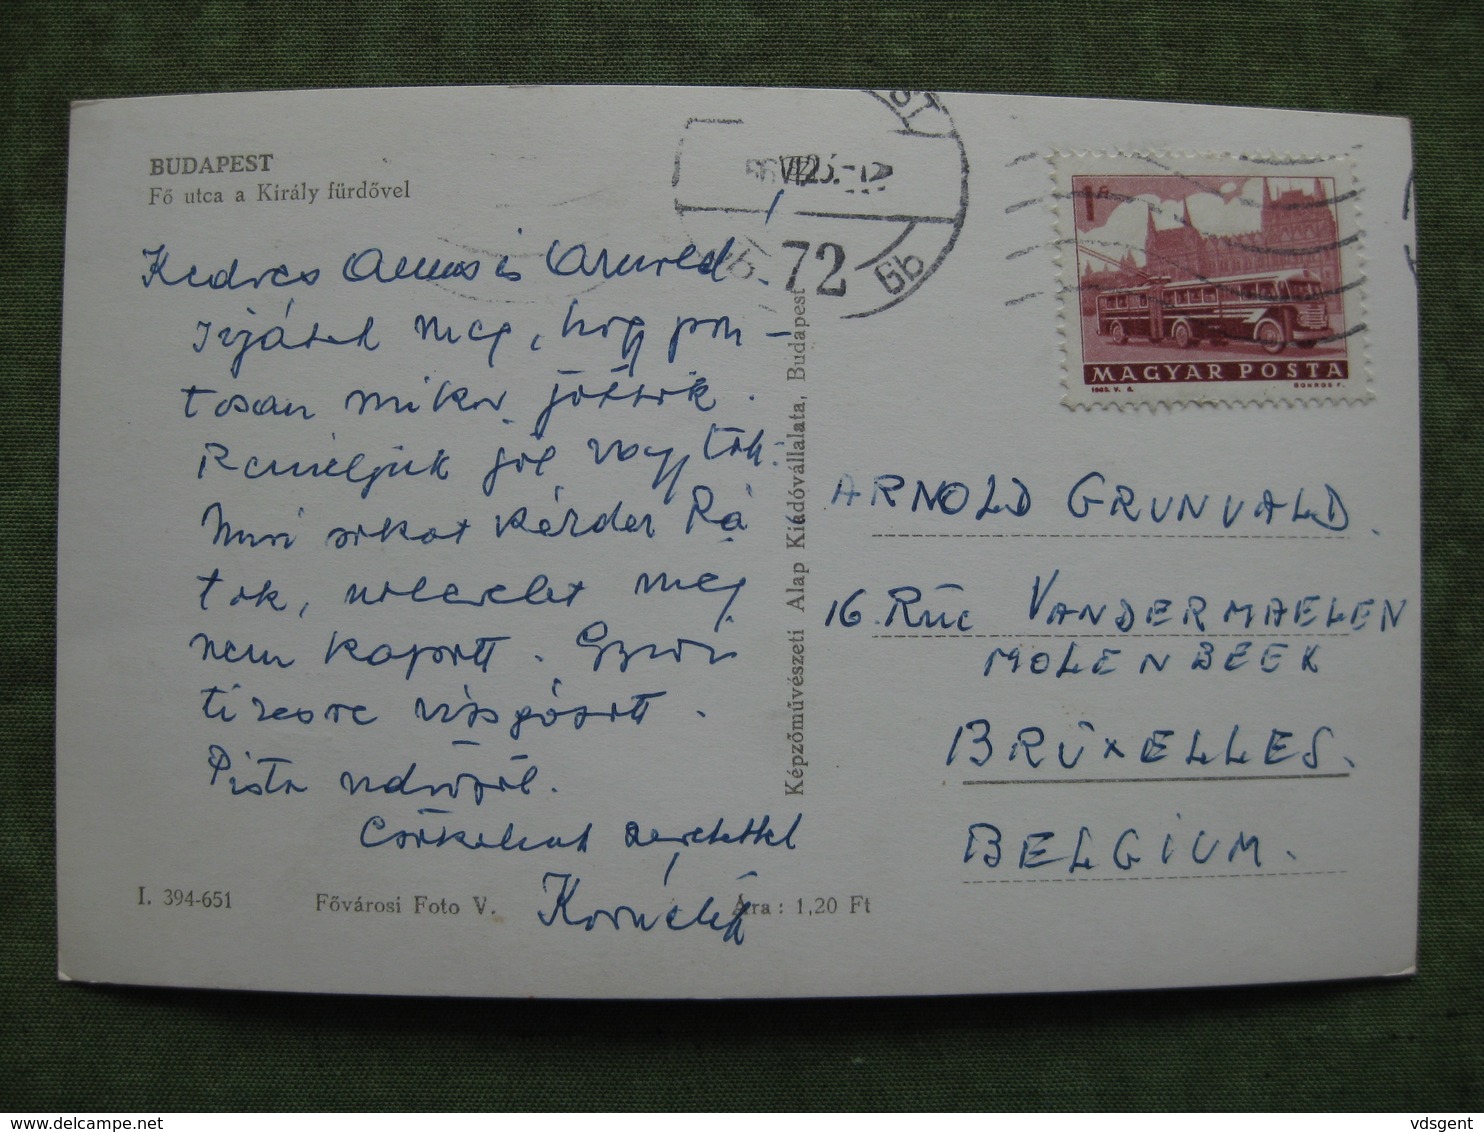 BUDAPEST
Fő utca a Király fürdővel
Kedves és Arnold
Írjátok meg, hogy pon-
tosan mikor jöttök.
Reméljük jól vagytok.
Misi sokat kérdez Rá
tok, levelet még
nem kapott.
tizesre vizsgázott.
Pista üdvözöl.
Csókolunk szeretettel
Kornélék
I. 394-651
Fővárosi Foto V.
Ára: 1,20 Ft
Képzőművészeti Alap Kiadóvállalata, Budapest
66 VII 23.-12
72
6b
1 Ft
MAGYAR POSTA
ARNOLD GRUNVALD.
16. Rue VANDERMAELEN
MOLENBEEK
BRÜXELLES.
BELGIUM.
delcampe.net
vdsgent